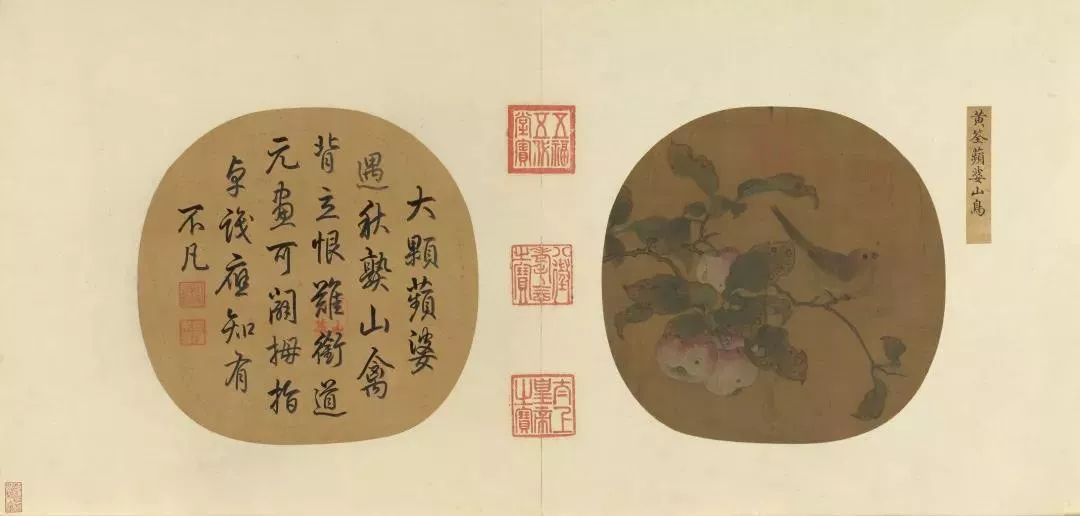 黃筌蘋婆山鳥
五福五代堂寶
八徵耄念之寶
太上皇帝之寶
大顆蘋婆
遇秋熟山禽
背立恨難銜道
元畫可拇指
卓識應知有
不凡